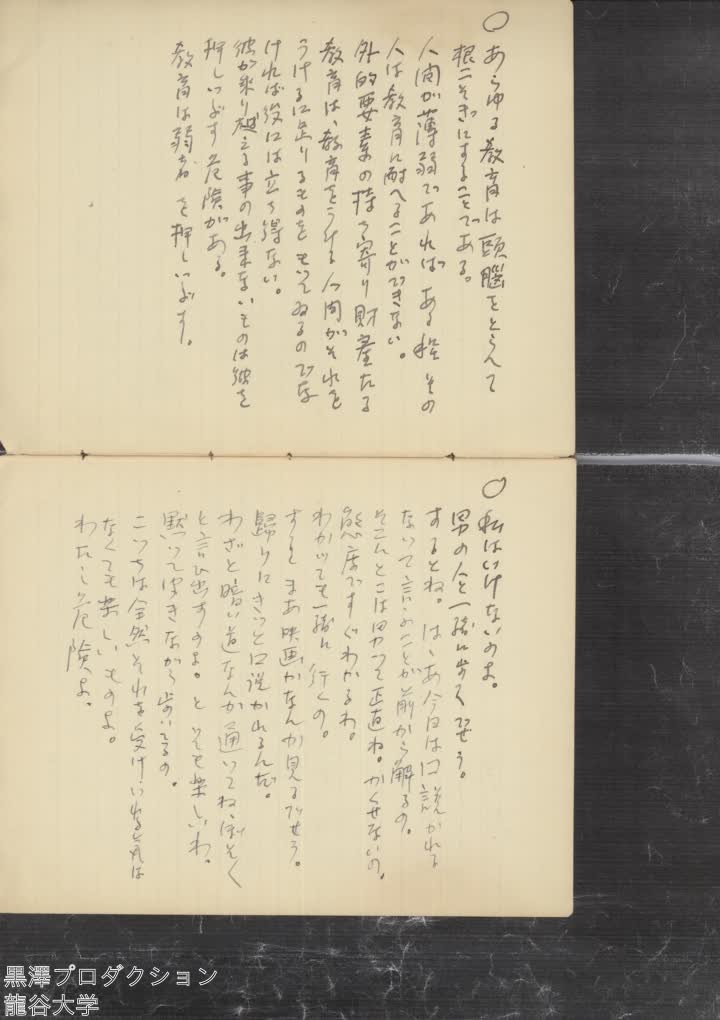 ○あらゆる教育は頭脳をとらへて
根こそぎにすることである。
人間が薄弱であればある程その
人は教育に耐へることができない。
外的要素の持ち寄り財産たる
教育は、教育をうける人間がそれを
うけるに足りるものをもってゐるのでな
ければ役には立ち得ない。
彼が乗り越える事の出来ないものは彼を
押しつぶす危険がある。
教育は弱者を押しつぶす。
○私はいけないのよ。
男の人と一緒に歩くでせう。
するとね。はゝあ今日は口説かれる
ないて言ふことが前から解るの。
そこんとこは男って正直ね。かくせないの。
態度ですぐわかるわ。
わかってても一緒に行くの。
すると まあ映画かなんか見るでせう。
歸りにきっと口説かれるんだ。
わざと暗い道なんか通いてね、ぼそぼそ
と言ひ出すのよ。とても楽しいわ。
黙って聞きながら歩いてるの。
こっちは全然それを受けいれる気は
なくても楽しいものよ。
わたし危険よ。
黒澤プロダクション
龍谷大学